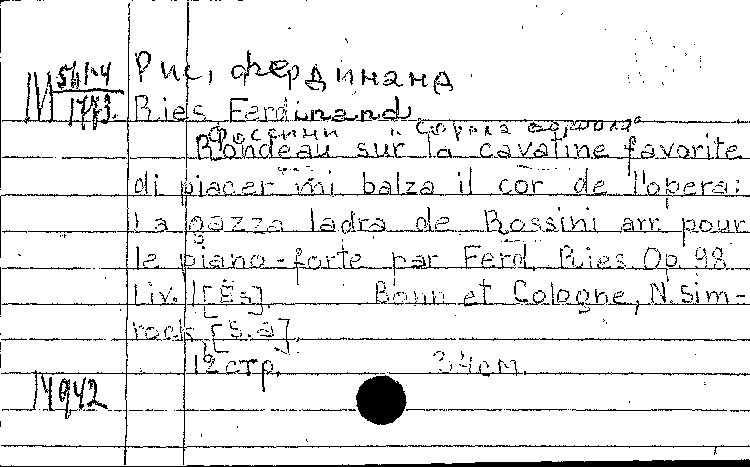 М 561-4
1773.
Рис, Фердинанд
Ries Ferdinand
Россини "Сорока воровка"
Rondeau sur la cavatine favorite
di piacer mi balza il cor de l'opera:
La gazza ladra de Rossini arr. pour
le piano-forte par Ferd. Ries Op. 98
Liv. 1 [Es]. Bonn et Cologne, N. Sim-
rock, [s.a].
12 стр. 34 см.
М 942